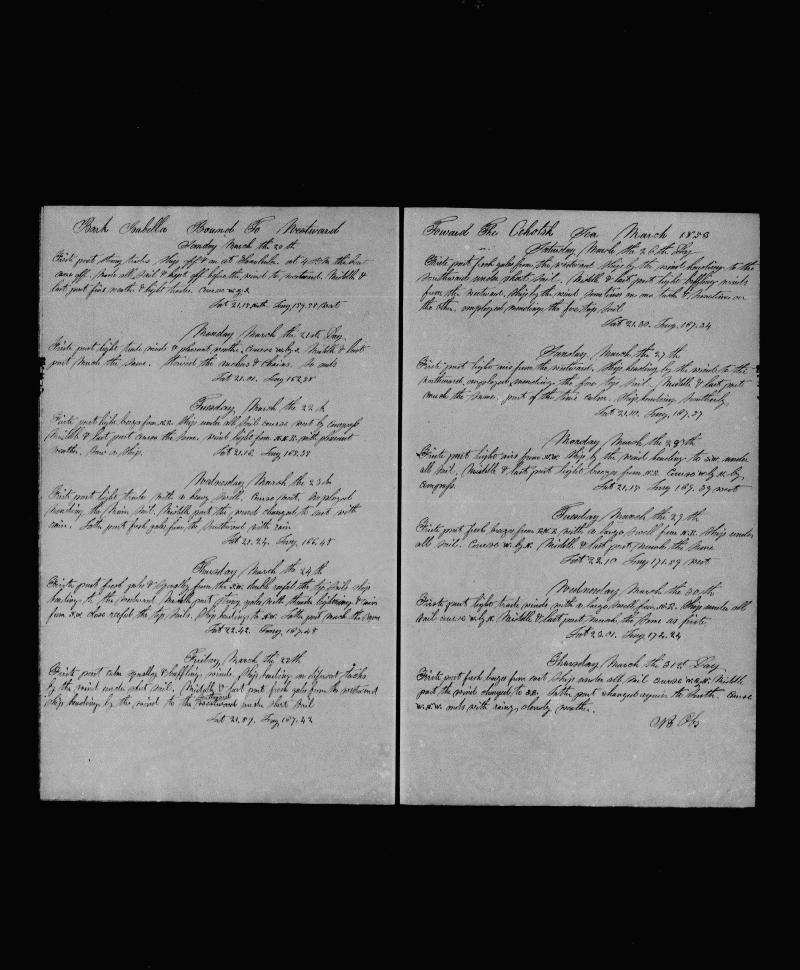 Bark Isabella Bound To Westward
Sunday March the 20th
Firste part strong trades. Ship off & on at Honolulu. at 4 P.M. the boat
came off. made all sail & kept off before the wind to westward. Middle &
last part fine weather & light trades. Course
Lat 21.18 North Long 159.28 West
Monday March the 21st Day
Firste part light trade winds & pleasant weather. Course W. by S. Middle & last
part much the same. Stowed the anchors & chains. So ends
Lat 21.01. Long 162.38
Tuesday March the 22d
Firste part light breezes from N.E. Ship under all sail course west by compass
Middle & last part Course the same. wind light from N.E. with pleasant
weather. Saw a ship. Lat 21.16. Long 165.38
Wednesday March the 23d
Firste part light trades with a heavy swell. Course west. Employed
mending the main sail. Middle part the wind changed to east with
rain. Latter part fresh gales from the southward with rain
Lat 21.24. Long 166.48
Thursday March the 24th
Firste part fresh gales & squaley from the S.W. double reefed the top sails ship
heading to the westward. Middle part strong gales with thunder lightning & rain
from S.W. close reefed the top sails. Ship heading to N.W. Latter part much the same
Lat 22.42. Long 167.48
Friday March the 25th
Firste part calm squalley & baffling winds. Ship heading on different tacks
by the wind under short sail. Middle & last part fresh gales from the westward
ship heading by the wind to the under short sail
Lat 21.59. Long 167.42
Toward The Ochotsk Sea March 1858
Saturday March the 26th Day
Firste part fresh gales from the westward. Ship by the wind heading to the
southward under short sail. Middle & last part light baffling winds
from the westward. Ship by the wind sometimes on one tack & sometimes on
the other. employed mending the fore top sail
Lat 21.30. Long. 167.34
Sunday March the 27th
Firste part light airs from the westward. Ship heading by the wind to the
southward employed mending the fore top sail. Middle & last part
much the same. part of the time calm. Ship heading southerly
Lat 21.10. Long. 167.37
Monday March the 28th
Firste part light airs from N.W. Ship by the wind heading to S.W. under
all sail. Middle & last part light breezes from N.E. Course W. by N. by
compass. Lat 21.18 Long 169.39 west
Tuesday March the 29th
Firste part fresh breezes from E.N.E. with a large swell from N.W. Ship under
all sail. Course W. by N. Middle & last part much the same
Lat 22.10 Long 171.59 west
Wednesday March the 30th
Firste part light trade winds with a large swell from N.W. Ship under all
sail course W. by N. Middle & last part much the same as firste
Lat 23.01. Long 174.24
Thursday March the 31st Day
Firste part fresh breezes from east. Ship under all sail course W.N.W. Middle
part the wind changed to S.E. Latter part changed again to South. Course
W.N.W. ends with rainy, cloudy weather.
No Obs